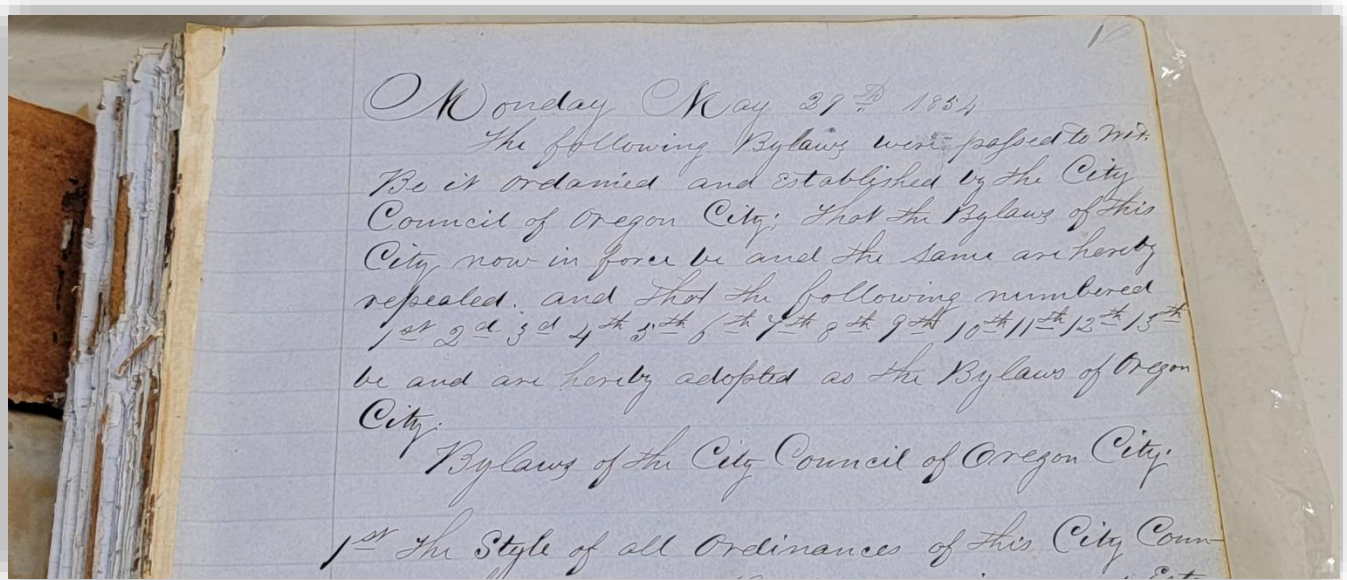 Monday May 29th 1854
The following Bylaws were passed to Wit.
Be it ordanied and established by the City
Council of Oregon City; That the Bylaws of this
City now in force be and the same are hereby
repealed. and that the following numbered
1st 2d 3d 4th 5th 6th 7th 8th 9th 10th 11th 12th 13th
be and are hereby adopted as the Bylaws of Oregon
City.
Bylaws of the City Council of Oregon City.
1st The Style of all Ordinances of this City Coun-